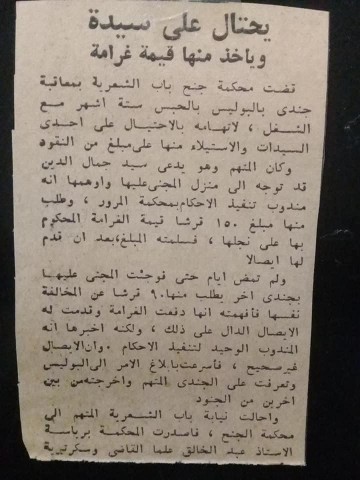 يحتال على سيدة
وياخذ منها قيمة غرامة
قضت محكمة جنح باب الشعرية بمعاقبة
جندى بالبوليس بالحبس ستة اشهر مع
الشغل ، لاتهامه بالاحتيال على احدى
السيدات والاستيلاء منها على مبلغ من النقود
وكان المتهم وهو يدعى سيد جمال الدين
قد توجه الى منزل المجنى عليها واوهمها انه
مندوب تنفيذ الاحكام بمحكمة المرور ، وطلب
منها مبلغ ١٥٠ قرشا قيمة الغرامة المحكوم
بها على نجلها ، فسلمته المبلغ ، بعد ان قدم
لها ايصالا
ولم تمض ايام حتى فوجئت المجنى عليها
بجندى اخر يطلب منها ٩٠ قرشا عن المخالفة
نفسها فأفهمته انها دفعت الغرامة وقدمت له
الايصال الدال على ذلك ، ولكنه اخبرها انه
المندوب الوحيد لتنفيذ الاحكام . وان الايصال
غير صحيح ، فأسرعت بابلاغ الامر الى البوليس
وتعرفت على الجندى المتهم واخرجته من بين
اخرين من الجنود
واحالت نيابة باب الشعرية المتهم الى
محكمة الجنح ، فاصدرت المحكمة برياسة
الاستاذ عبد الخالق علما القاضى وسكرتيرية